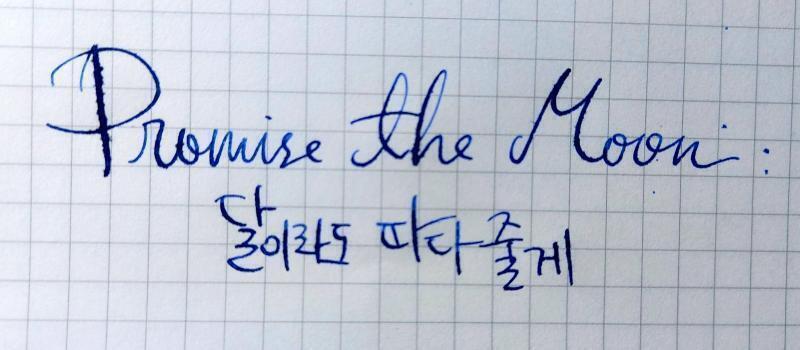 Promise the Moon :
달이라도 따다 줄게